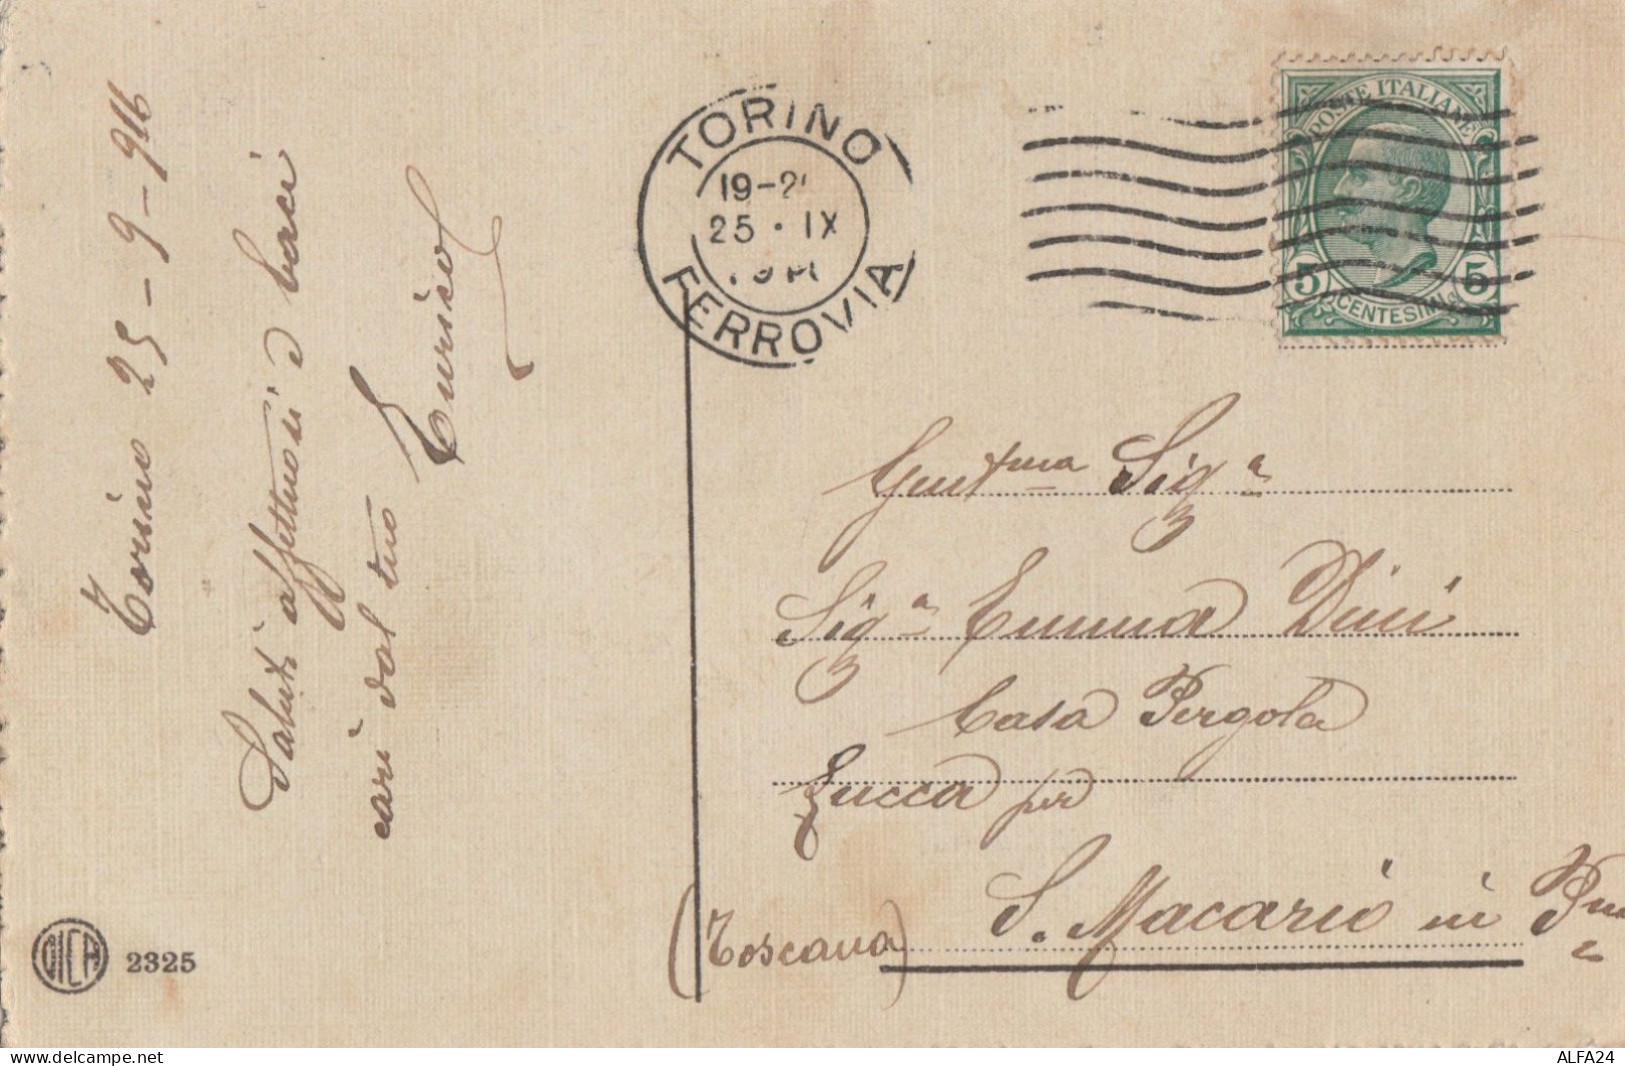 Torino 25-9-916
Saluti affettuosi e baci
cari dal tuo
TORINO
19-2
25 · IX
FERROVIA
POSTE ITALIANE
5 CENTESIMI 5
Gentma Siga
Siga Emma Dini
Casa Pergola
Lucca per
S. Macario in
(Toscana)
2325
delcampe.net
ALFA24